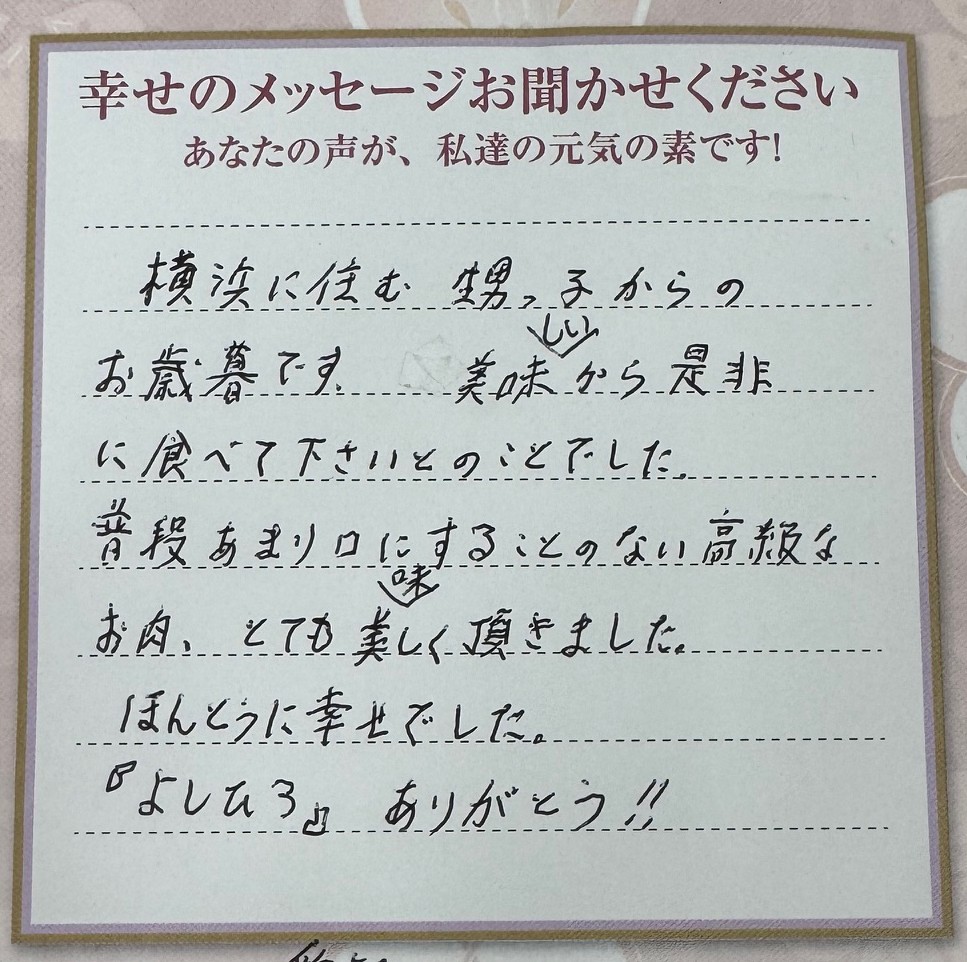 幸せのメッセージお聞かせください
あなたの声が、私達の元気の素です!
横浜に住む 甥っ子からの
お歳暮です。 美味しいから是非
に食べて下さいとのことでした。
普段あまり口にすることのない高級な
お肉、とても美味しく頂きました。
ほんとうに幸せでした。
『よしひろ』 ありがとう!!